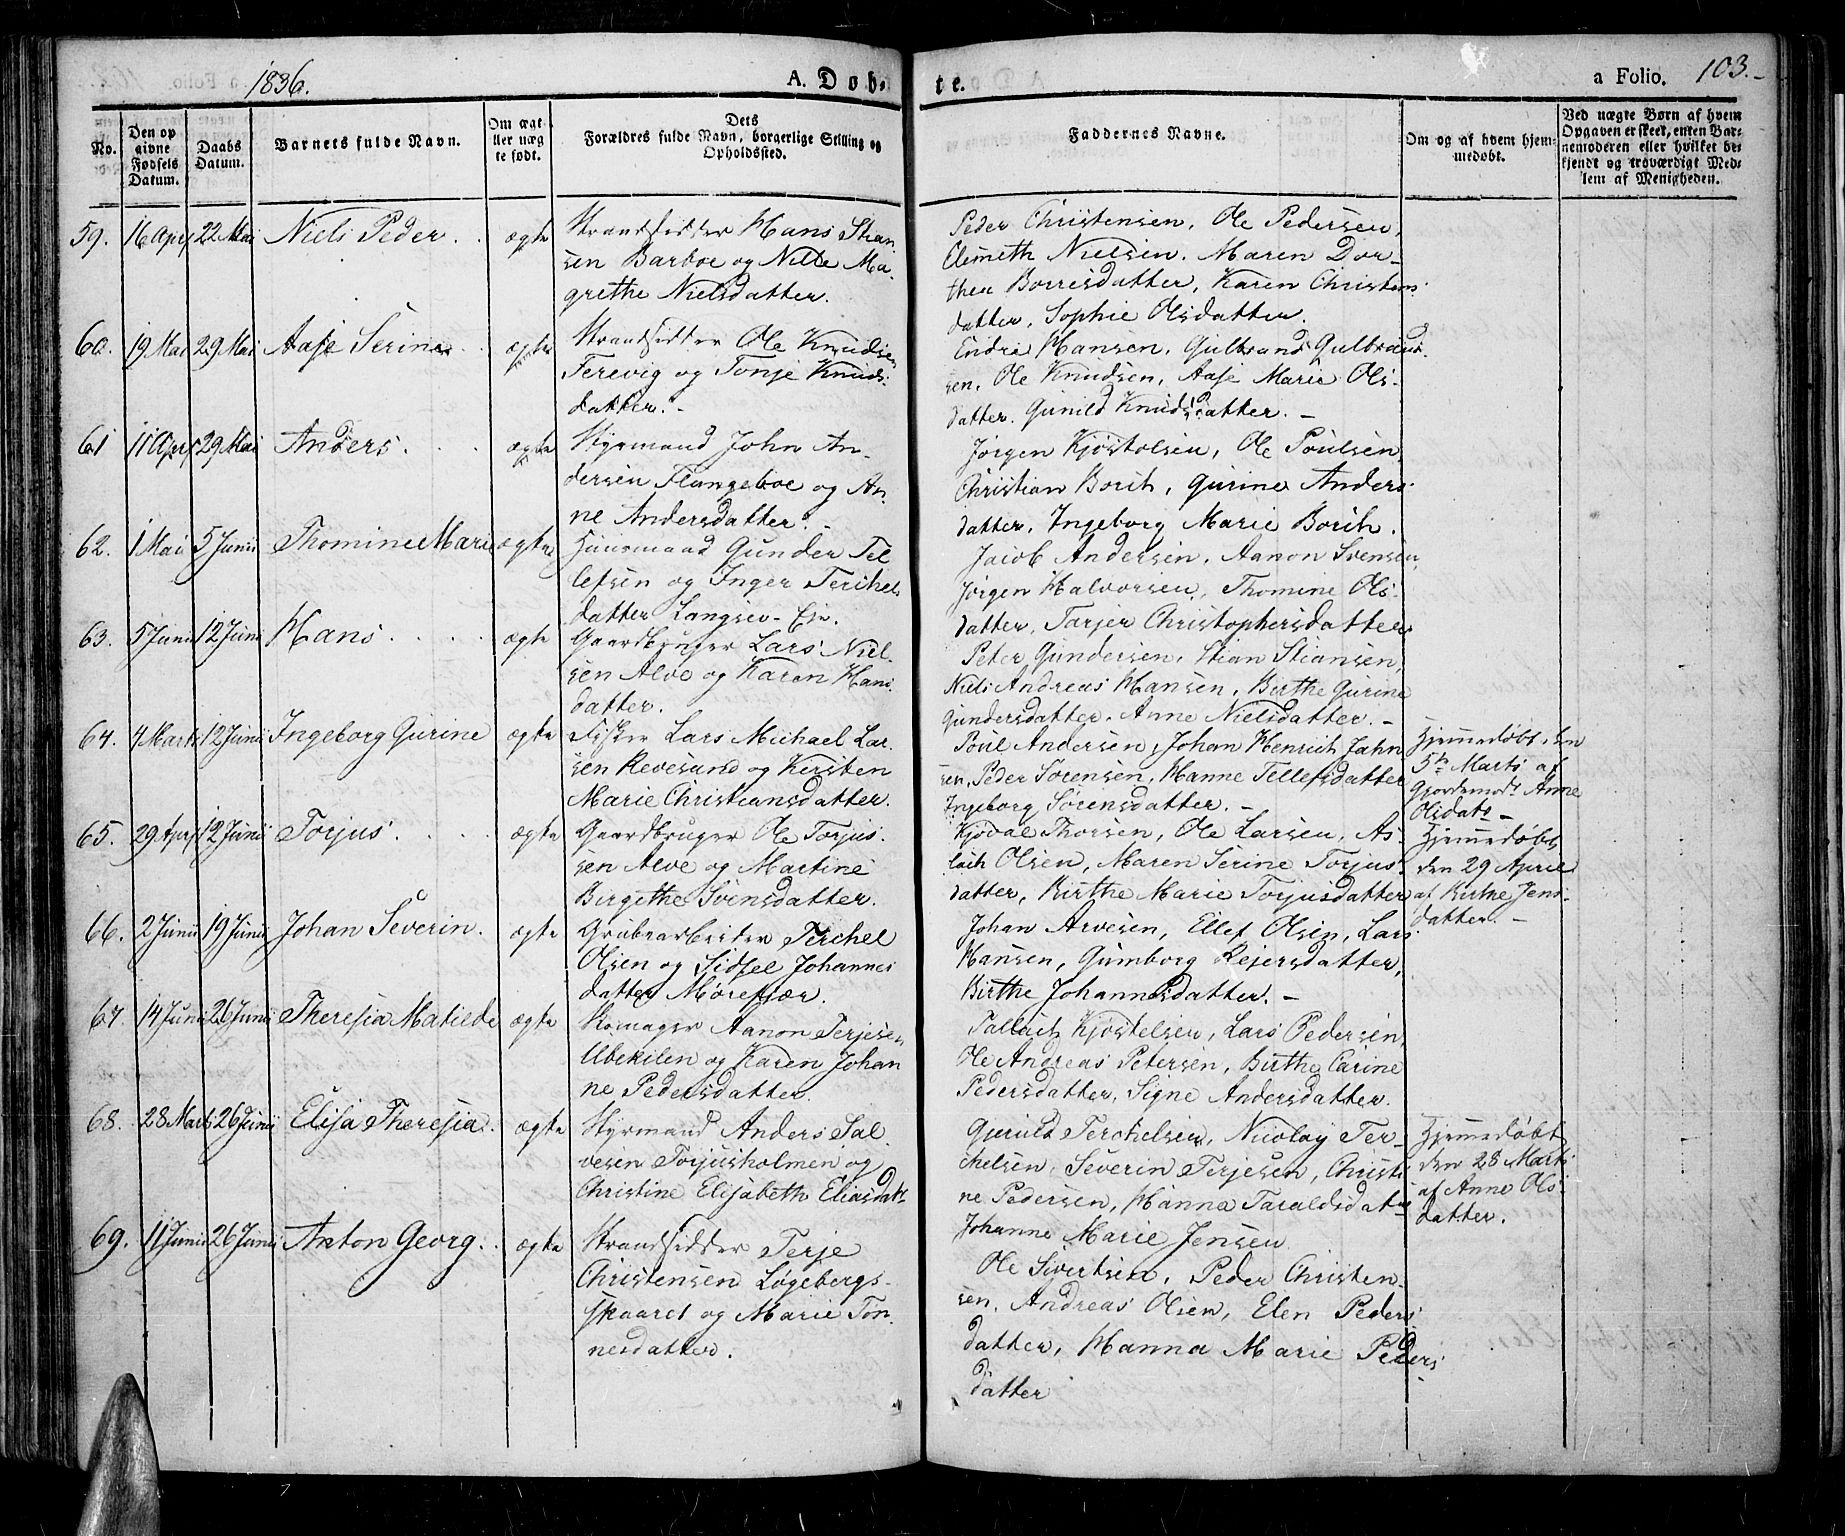 1836.
A. Døb-
te.
a Folio. 103.
No.
Den op
givne
Fødsels
Datum.
Daabs
Datum.
Barnets fulde Navn.
Om ægt
ller næg
te født.
Dets
Forældres fulde Navn, borgerlige Stilling og
Opholdssted.
Faddernes Navne.
Om og af hvem hjem-
medøbt.
Ved nægte Børn af hvem
Opgaven er skeet, enten Bar-
nemoderen eller hvilket be-
kjendt og troværdigt Med-
lem af Menigheden.
59. 16 April 22 Mai Niels Peder . . ægte
Strandsidder Hans Stean
sen Barboe og Nille Ma-
grethe Nielsdatter.
Peder Christensen, Ole Pedersen,
Clemeth Nielsen. Maren Dor-
thea Borresdatter, Karen Christens
datter, Sophie Olsdatter.
60. 19 Mai 29 Mai Aase Serine . . ægte
Strandsidder Ole Knudsen
Terevig og Tonje Knuds-
datter. -
Endre Hansen, Gulbrand Gulbrand-
sen, Ole Knudsen, Aase Marie Ols-
datter. Gunild Knudsdatter. -
61 11 April 29 Mai Anders . . . ægte
Styrmand John An-
dersen Flangeboe og An-
ne Andersdatter. -
Jørgen Kjøstolsen, Ole Poulsen,
Christian Borith, Gurine Anders
datter, Ingeborg Marie Borith.
62. 1 Mai 5 Junii Thomine Marie ægte
Huusmand Gunder Tel
lefsen og Inger Terchels
datter Langsev-Eie.
Jacob Andersen, Aanon Svensen,
Jørgen Halvorsen, Thomine Ols-
datter, Tarjer Christophersdatter
63. 5 Junii 12 Junii Hans . . . . ægte
Gaardbruger Lars Niel-
sen Alve og Karen Hans
datter.
Peter Gundersen, Stian Stiansen,
Niels Andreas Hansen, Birthe Gurine
Gundersdatter. Anne Nielsdatter. -
64. 4 Marts 12 Junii Ingeborg Gurine ægte
Fisker Lars Michael Lar-
sen Revesund og Kirsten
Marie Christiansdatter.
Poul Andersen, Johan Henrich Jahn
sen, Peder Sørensen, Hanne Tellefsdatter
Ingeborg Sørensdatter. -
Hjemmedøbt den
5te Marts af
Gjordemodr Anne
Olsdatr -
65. 29 April 12 Junii Torjus. . . . ægte
Gaardbruger Ole Torjus-
sen Alve og Martine
Birgethe Svensdatter.
Kjødal Thorsen, Ole Larsen, As-
lach Olsen, Maren Serine Torjus-
datter, Birthe Marie Torjusdatter
Hjemmedøbt
den 29 April
af Birthe Jens-
datter. -
66. 2 Junii 19 Junii Johan Severin. ægte
Grubearbeider Terchel
Olsen og Sidsel Johannes
datter Mørefjær.
Johan Arvesen, Ellef Olsen, Lars
Hansen, Gumborg Reiersdatter,
Birthe Johannesdatter. -
67. 14 Junii 26 Junii Theresia Matilde ægte
Skomager Aanon Terjesen
Ubekilen og Karen Johan
ne Pedersdatter.
Pallach Kjøstelsen, Lars Pedersen,
Ole Andreas Petersen, Birthe Carine
Pedersdatter, Signe Andersdatter.
68. 28 Marts 26 Junii Elisa Theresia. ægte
Styrmand Anders Sal-
vesen Torjusholmen og
Christine Elisabeth Eliasdatr
Gjeruld Terchelsen, Nicolay Ter-
chelsen, Severin Terjesen, Christi
ne Pedersen, Hanna Taraldsdatter
Johanne Marie Jensen
Hjemmedøbt
den 28 Marts
af Anne Ols-
datter.
69. 11 Junii 26 Junii Anton Georg. . ægte
Strandsidder Terje
Christensen Løgebergs-
skaaret og Marie Tøn-
nesdatter.
Ole Sivertsen, Peder Christen-
sen, Andreas Olsen, Elen Peders
datter, Hanna Marie Peders
datter